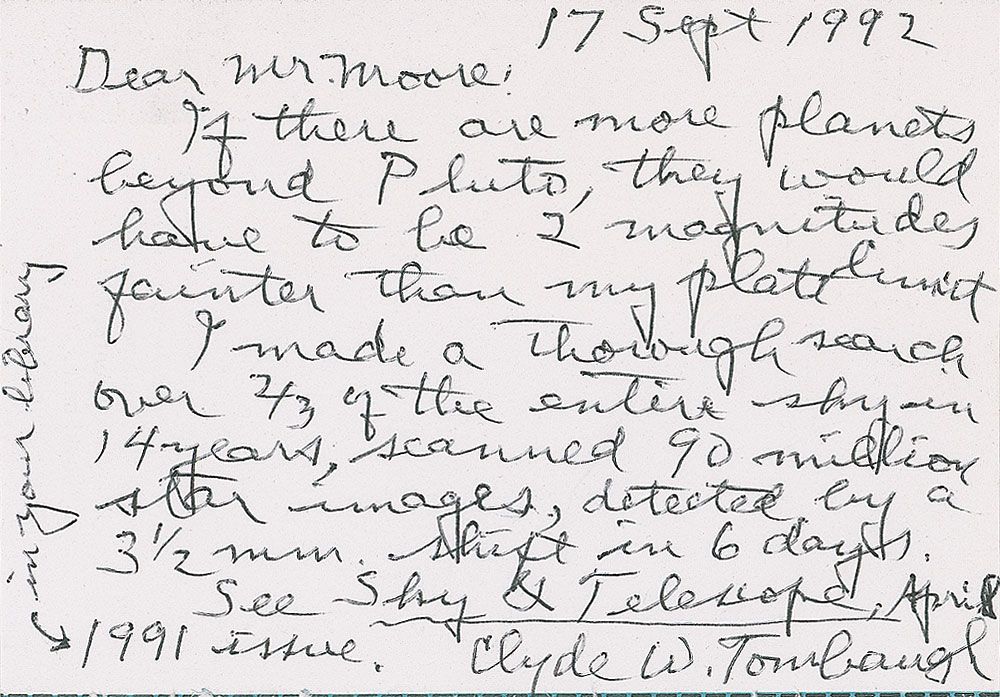 17 Sept 1992
Dear Mr. Moore:
If there are more planets
beyond Pluto, they would
have to be 2 magnitudes
fainter than my plate limit
I made a thorough search
over 2/3 of the entire sky in
14 years, scanned 90 million
star images, detected by a
3 1/2 mm. shift in 6 days.
See Sky & Telescope, April
1991 issue. Clyde W. Tombaugh
in your library